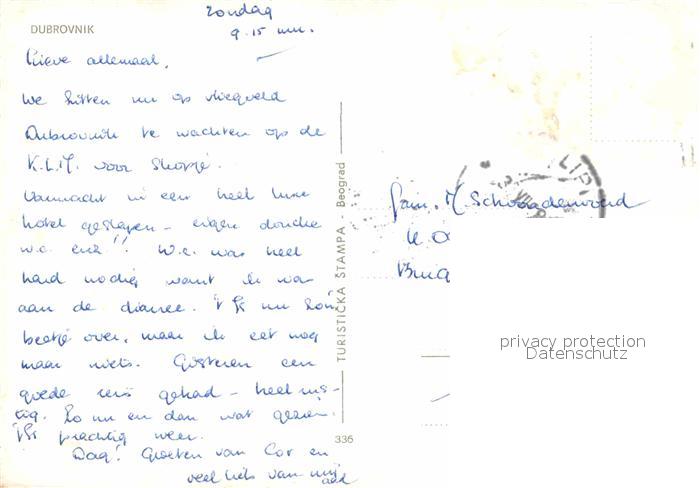 zondag
9.15 uur.
DUBROVNIK
Lieve allemaal,
We zitten nu op vliegveld
Dubrovnik te wachten op de
K.L.M. voor Skopje.
Vannacht in een heel luxe
hotel geslapen - eigen douche
w.c. enz!! W.c. was heel
hard nodig want ik was
aan de diarree. 't Is nu
beetje over, maar ik eet nog
maar niets. Gisteren een
goede reis gehad - heel rus-
tig. Zo nu en dan wat gezien.
't Is prachtig weer.
Dag! Groeten van Cor en
veel liefs van mij
TURISTIČKA ŠTAMPA - Beograd
336
Fam. M. Schoordenwoerd
Brug
privacy protection
Datenschutz